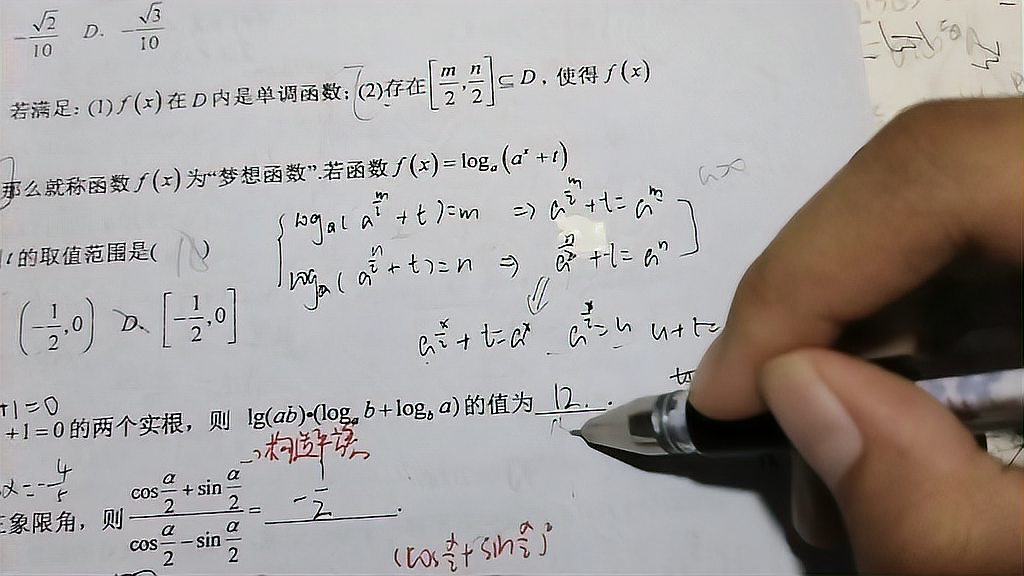 -√2/10 D. -√3/10
若满足：(1) f(x) 在 D 内是单调函数；(2)存在[m/2, n/2]⊆D，使得 f(x)
那么就称函数 f(x) 为“梦想函数”.若函数 f(x)=log_a(a^x+t)
log_a(a^{m/2}+t)=m ⇒ a^{m/2}+t=a^m
t 的取值范围是( )
log_a(a^{n/2}+t)=n ⇒ a^{n/2}+t=a^n
(-1/2,0) D. [-1/2,0]
a^{x/2}+t=a^x a^{x/2}=u u+t=
+1=0
+1=0 的两个实根，则 lg(ab)•(log_a b+log_b a) 的值为 12.
构造
α=-4/5
象限角，则 (cos α/2+sin α/2)/(cos α/2-sin α/2)= -1/2 .
(cos α/2+sin α/2)²